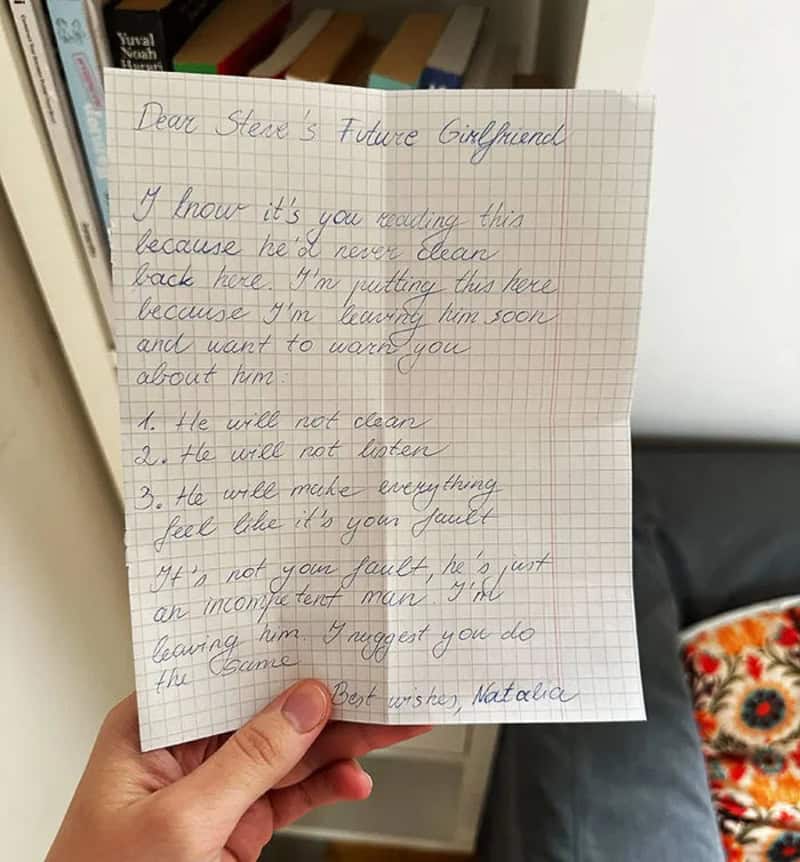 Yuval
Noah
Harari
Dear Steve's Future Girlfriend
I know it's you reading this
because he'd never clean
back here. I'm putting this here
because I'm leaving him soon
and want to warn you
about him:
1. He will not clean
2. He will not listen
3. He will make everything
feel like it's your fault
It's not your fault, he's just
an incompetent man. I'm
leaving him. I suggest you do
the same
Best wishes, Natalia